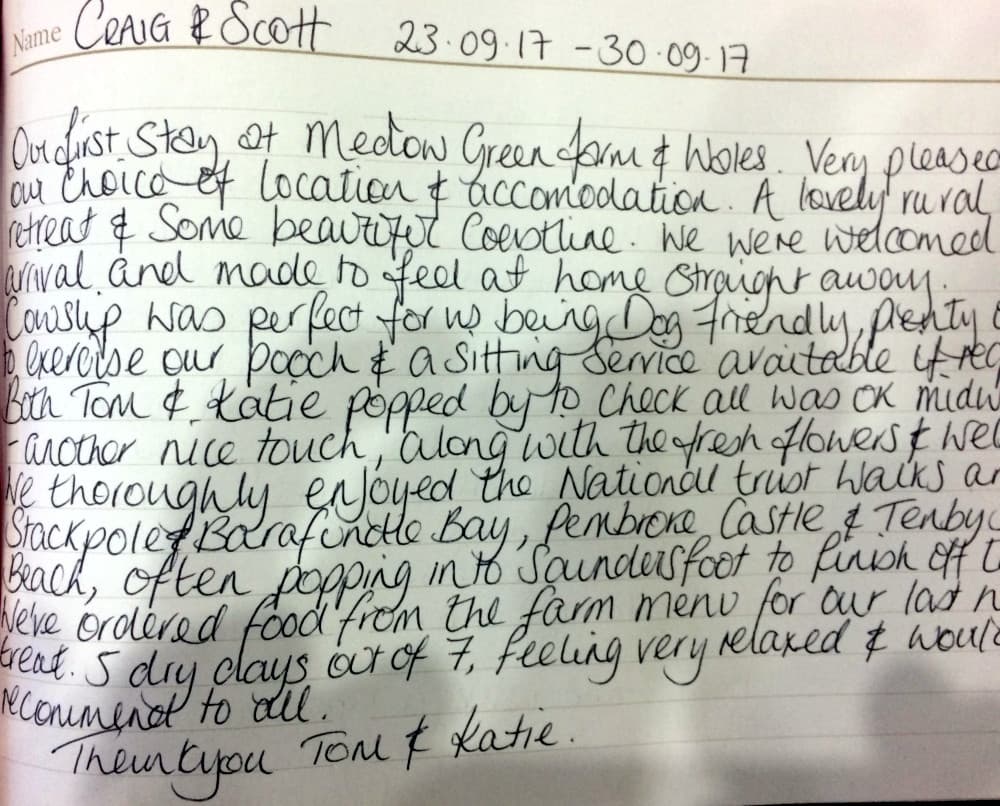 Name CRAIG & SCOTT 23.09.17 - 30.09.17
Our first stay at Medow Green farm & Wales. Very pleased
our choice of location & accomodation. A lovely rural
retreat & some beautiful coastline. We were welcomed
arrival and made to feel at home straight away.
Cowslip was perfect for us being Dog friendly, plenty
to exercise our pooch & a sitting service available if req
Both Tom & Katie popped by to check all was OK midw
- another nice touch, along with the fresh flowers & wel
We thoroughly enjoyed the National trust walks ar
Stackpole & Barafundle Bay, Pembroke Castle & Tenby
Beach, often popping in to Saundersfoot to finish off t
We've ordered food from the farm menu for our last n
treat. 5 dry days out of 7, feeling very relaxed & would
recommend to all.
Thankyou Tom & Katie.